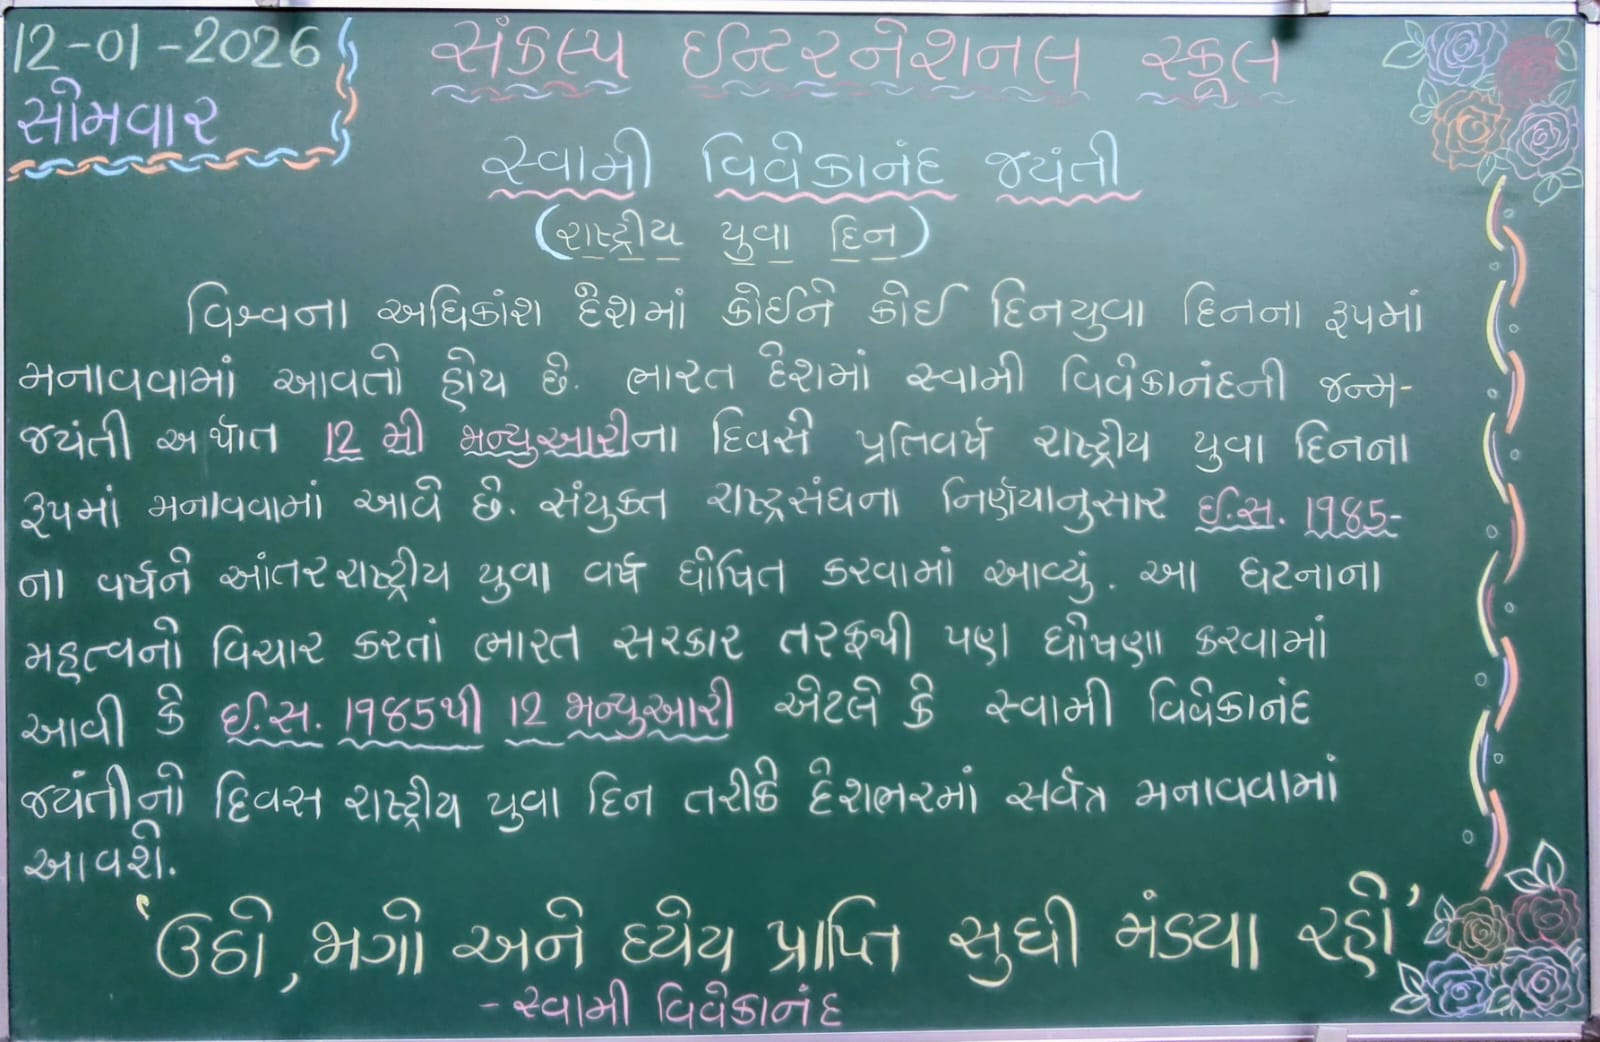 12-01-2026
સોમવાર
સંકલ્પ ઈન્ટરનેશનલ સ્કૂલ
સ્વામી વિવેકાનંદ જયંતી
(રાષ્ટ્રીય યુવા દિન)
વિશ્વના અધિકાંશ દેશમાં કોઈને કોઈ દિનયુવા દિનના રૂપમાં
મનાવવામાં આવતો હોય છે. ભારત દેશમાં સ્વામી વિવેકાનંદની જન્મ-
જયંતી અર્થાત 12 મી જાન્યુઆરીના દિવસે પ્રતિવર્ષ રાષ્ટ્રીય યુવા દિનના
રૂપમાં મનાવવામાં આવે છે. સંયુક્ત રાષ્ટ્રસંઘના નિર્ણયાનુસાર ઈ.સ. 1985-
ના વર્ષને આંતરરાષ્ટ્રીય યુવા વર્ષ ઘોષિત કરવામાં આવ્યું. આ ઘટનાના
મહત્વનો વિચાર કરતાં ભારત સરકાર તરફથી પણ ઘોષણા કરવામાં
આવી કે ઈ.સ. 1985થી 12 જાન્યુઆરી એટલે કે સ્વામી વિવેકાનંદ
જયંતીનો દિવસ રાષ્ટ્રીય યુવા દિન તરીકે દેશભરમાં સર્વત્ર મનાવવામાં
આવશે.
'ઉઠો, જાગો અને ધ્યેય પ્રાપ્તિ સુધી મંડ્યા રહો'
- સ્વામી વિવેકાનંદ